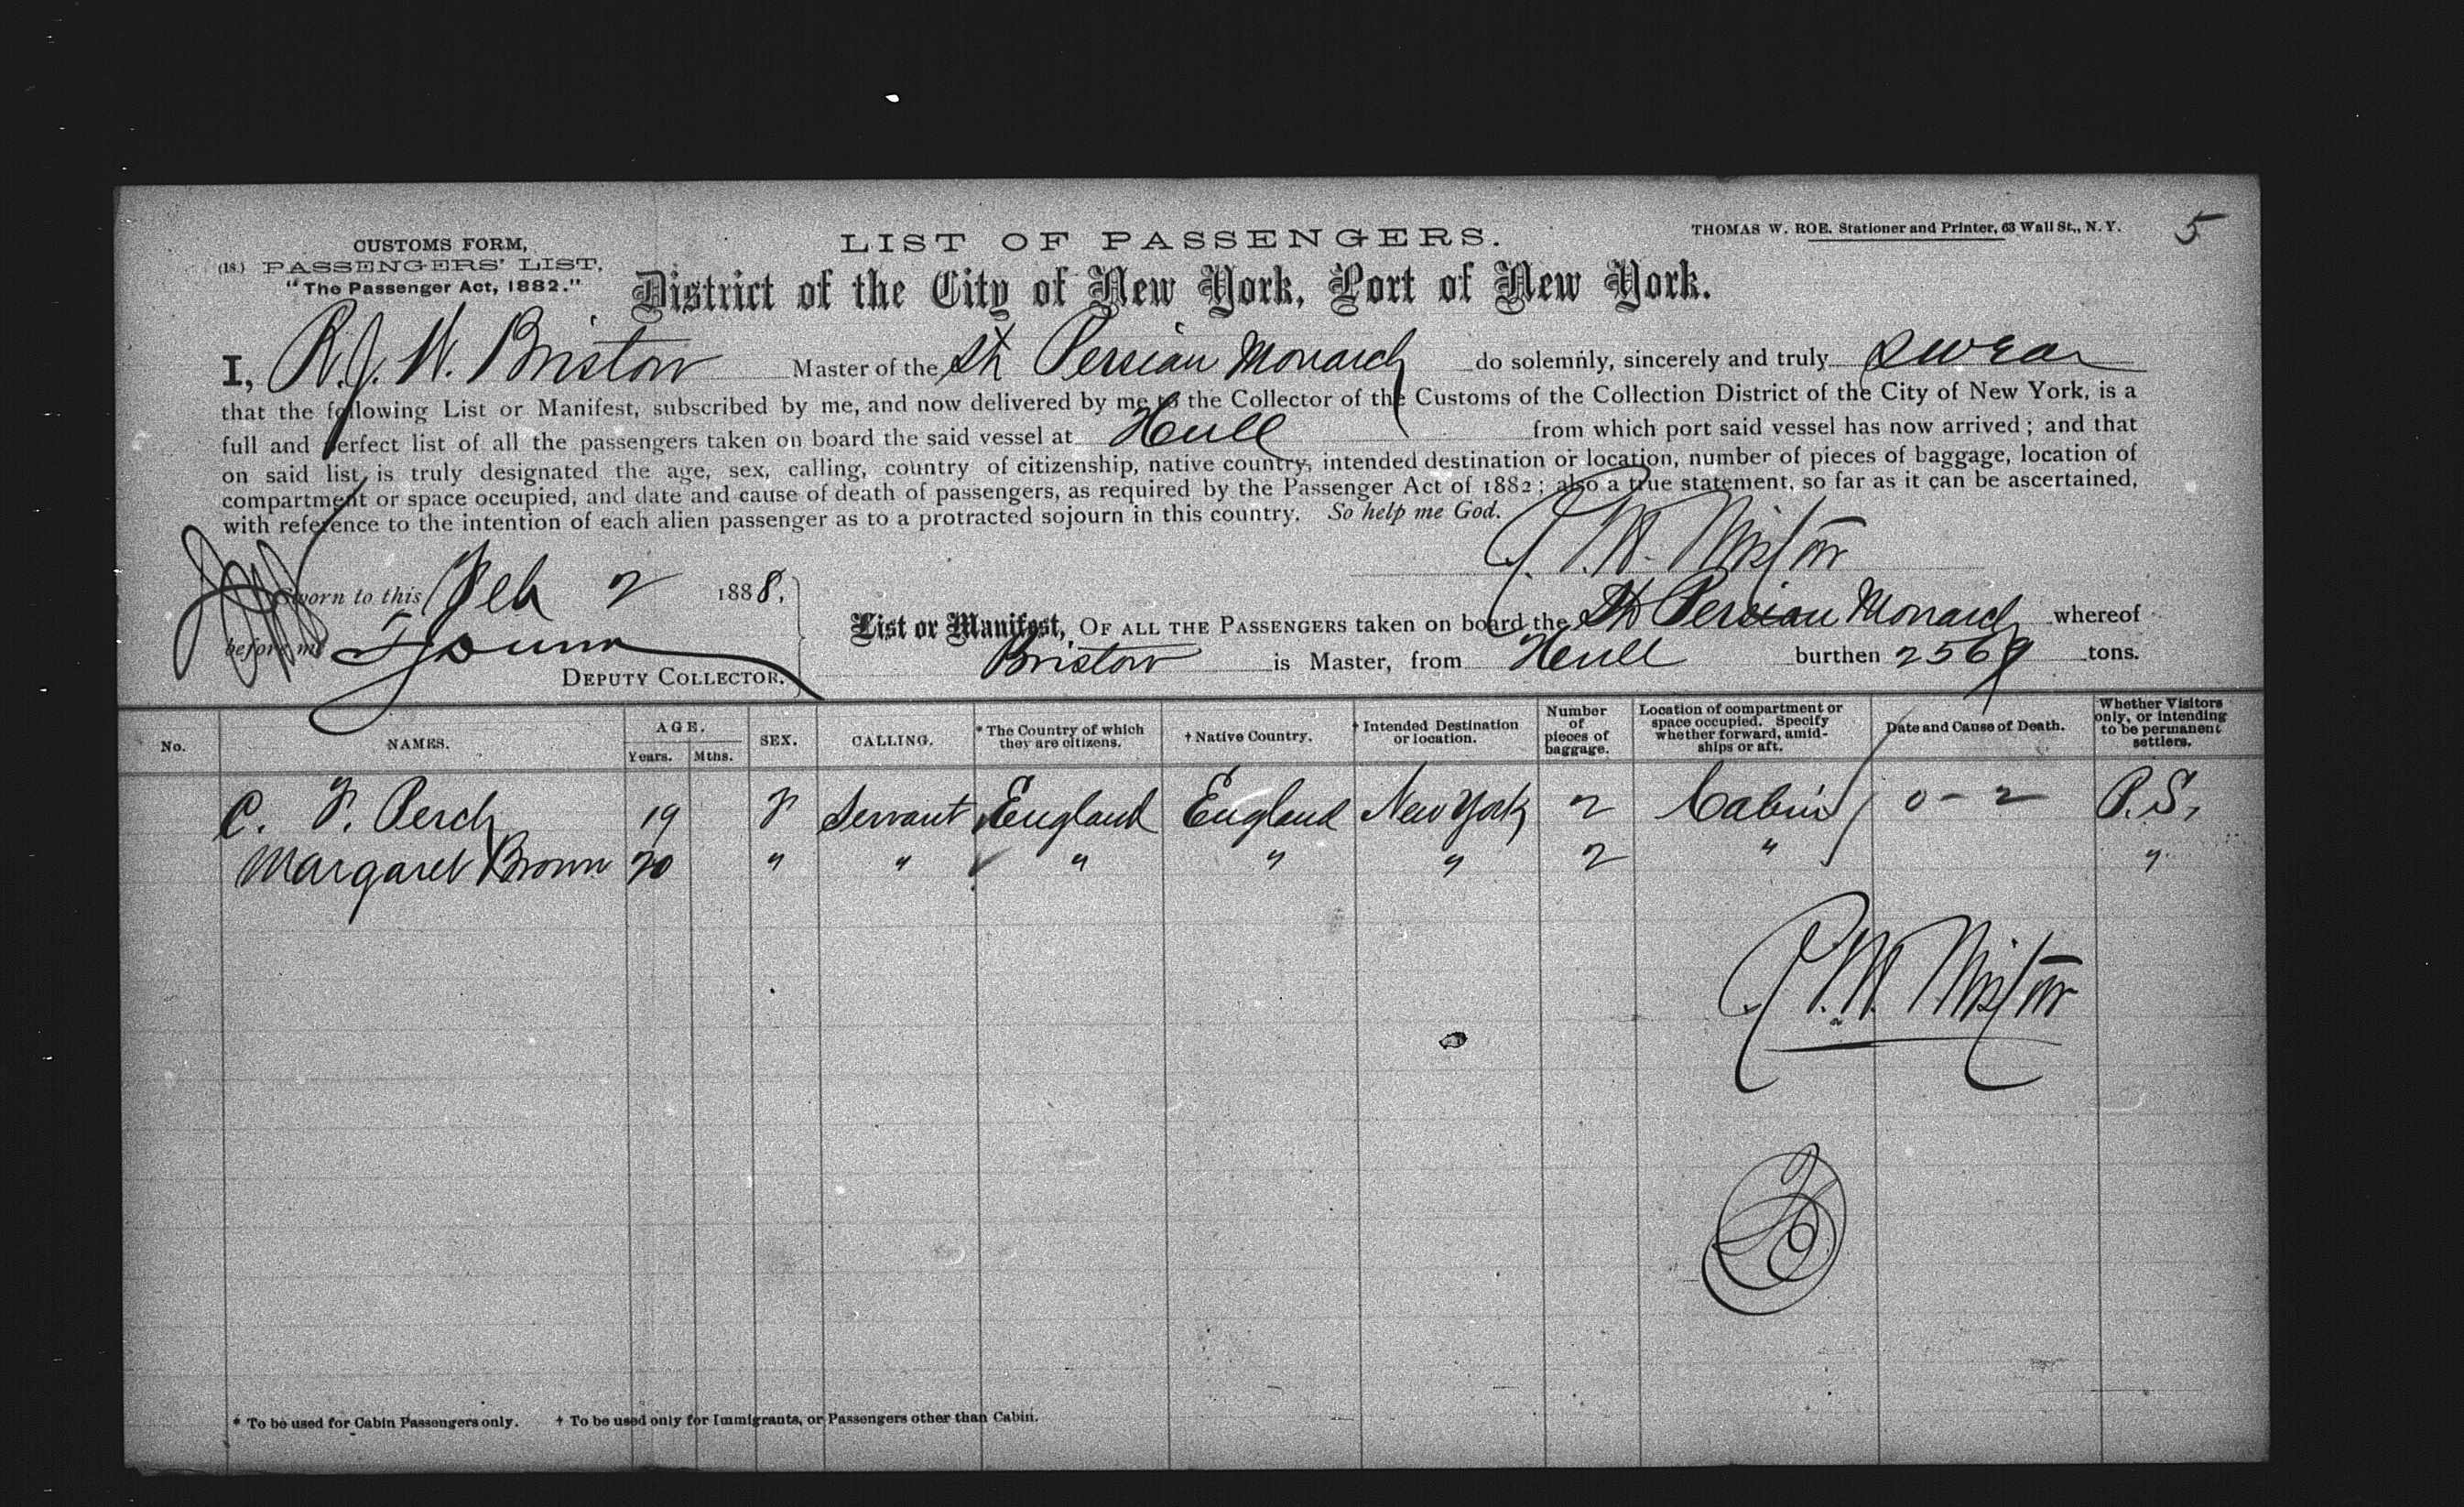 THOMAS W. ROE. Stationer and Printer, 63 Wall St., N. Y.
5
CUSTOMS FORM,
(18.) PASSENGERS' LIST,
"The Passenger Act, 1882."
LIST OF PASSENGERS.
District of the City of New York, Port of New York.
I, R. J. W. Bristow Master of the SS Persian Monarch do solemnly, sincerely and truly swear
that the following List or Manifest, subscribed by me, and now delivered by me to the Collector of the Customs of the Collection District of the City of New York, is a
full and perfect list of all the passengers taken on board the said vessel at Hull from which port said vessel has now arrived; and that
on said list is truly designated the age, sex, calling, country of citizenship, native country, intended destination or location, number of pieces of baggage, location of
compartment or space occupied, and date and cause of death of passengers, as required by the Passenger Act of 1882; also a true statement, so far as it can be ascertained,
with reference to the intention of each alien passenger as to a protracted sojourn in this country. So help me God.
Sworn to this Feb 2 1888,
before me
DEPUTY COLLECTOR.
List or Manifest, OF ALL THE PASSENGERS taken on board the SS Persian Monarch whereof
Bristow is Master, from Hull burthen 2569 tons.
No. NAMES. AGE. Years. Mths. SEX. CALLING. * The Country of which they are citizens. † Native Country. † Intended Destination or location. Number of pieces of baggage. Location of compartment or space occupied. Specify whether forward, amidships or aft. Date and Cause of Death. Whether Visitors only, or intending to be permanent settlers.
C. F. Perch 19 F Servant England England New York 2 Cabin 0-2 P.S.
Margaret Brown 20 " " " " " 2 " "
* To be used for Cabin Passengers only. † To be used only for Immigrants, or Passengers other than Cabin.